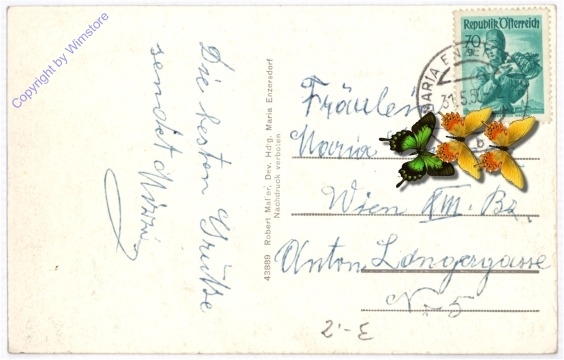 Copyright by Wimstore
Die besten Grüße
sendet Mizzi
43889 Robert Maller, Dev. Hdlg. Maria Enzersdorf
Nachdruck verboten
Republik Österreich
70
MARIA ENZE
31.5.5
b
Fräulein
Maria
Wien XIII. Bz.
Anton Langergasse
N 5
2'-E